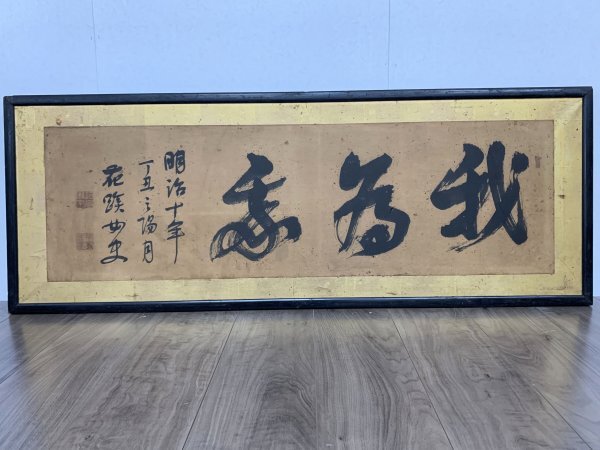 我為
明治十年
丁丑之陽月
花蹊女史